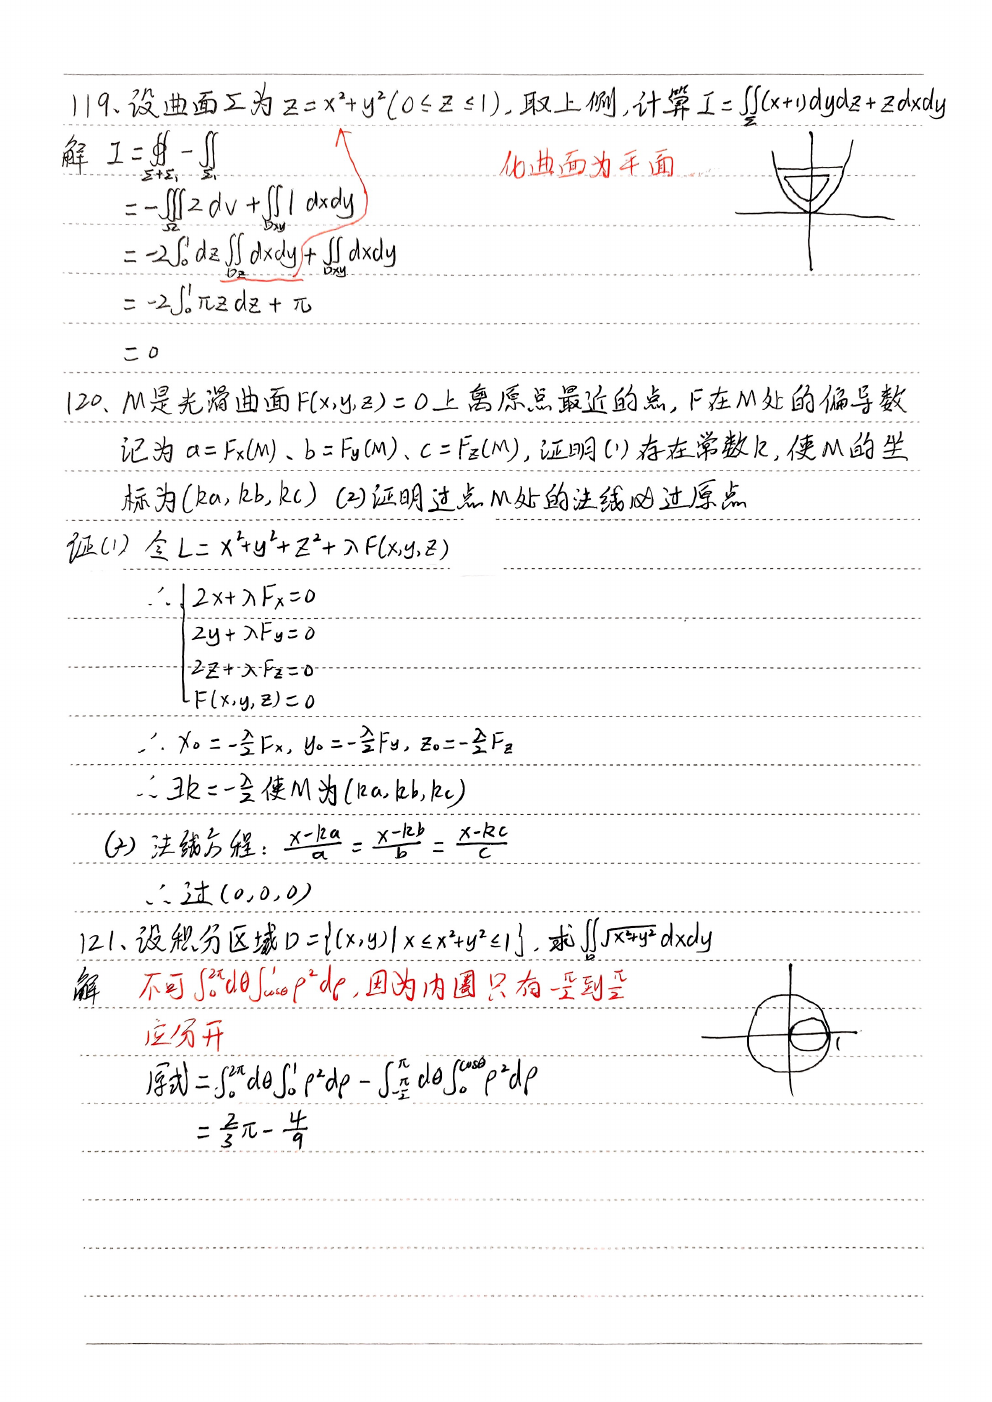 119、设曲面Σ为 z=x²+y²(0≤z≤1),取上侧,计算 I=∬_Σ(x+1)dydz+zdxdy
解 I=∯_{Σ+Σ₁} - ∬_{Σ₁}
化曲面为平面
=-∭_Ω 2dv+∬_{Dxy} 1 dxdy
=-2∫₀¹dz∬_{Dz}dxdy+∬_{Dxy}dxdy
=-2∫₀¹πzdz+π
=0
120、M是光滑曲面F(x,y,z)=0上离原点最近的点,F在M处的偏导数
记为 a=Fx(M)、b=Fy(M)、c=Fz(M),证明(1)存在常数k,使M的坐
标为(ka,kb,kc) (2)证明过点M处的法线必过原点
证(1) 令L=x²+y²+z²+λF(x,y,z)
∴ { 2x+λFx=0
2y+λFy=0
2z+λFz=0
F(x,y,z)=0
∴ x₀=-λ/2 Fx, y₀=-λ/2 Fy, z₀=-λ/2 Fz
∴∃k=-λ/2 使M为(ka,kb,kc)
(2) 法线方程: (x-ka)/a = (x-kb)/b = (x-kc)/c
∴过(0,0,0)
121、设积分区域D={(x,y)|x≤x²+y²≤1},求∬_D √(x²+y²) dxdy
解 不可∫₀^{2π}dθ∫_{cosθ}^1 ρ²dρ,因为内圈只有-π/2到π/2
应分开
1
原式=∫₀^{2π}dθ∫₀¹ρ²dρ-∫_{-π/2}^{π/2}dθ∫₀^{cosθ}ρ²dρ
=2/3 π - 4/9